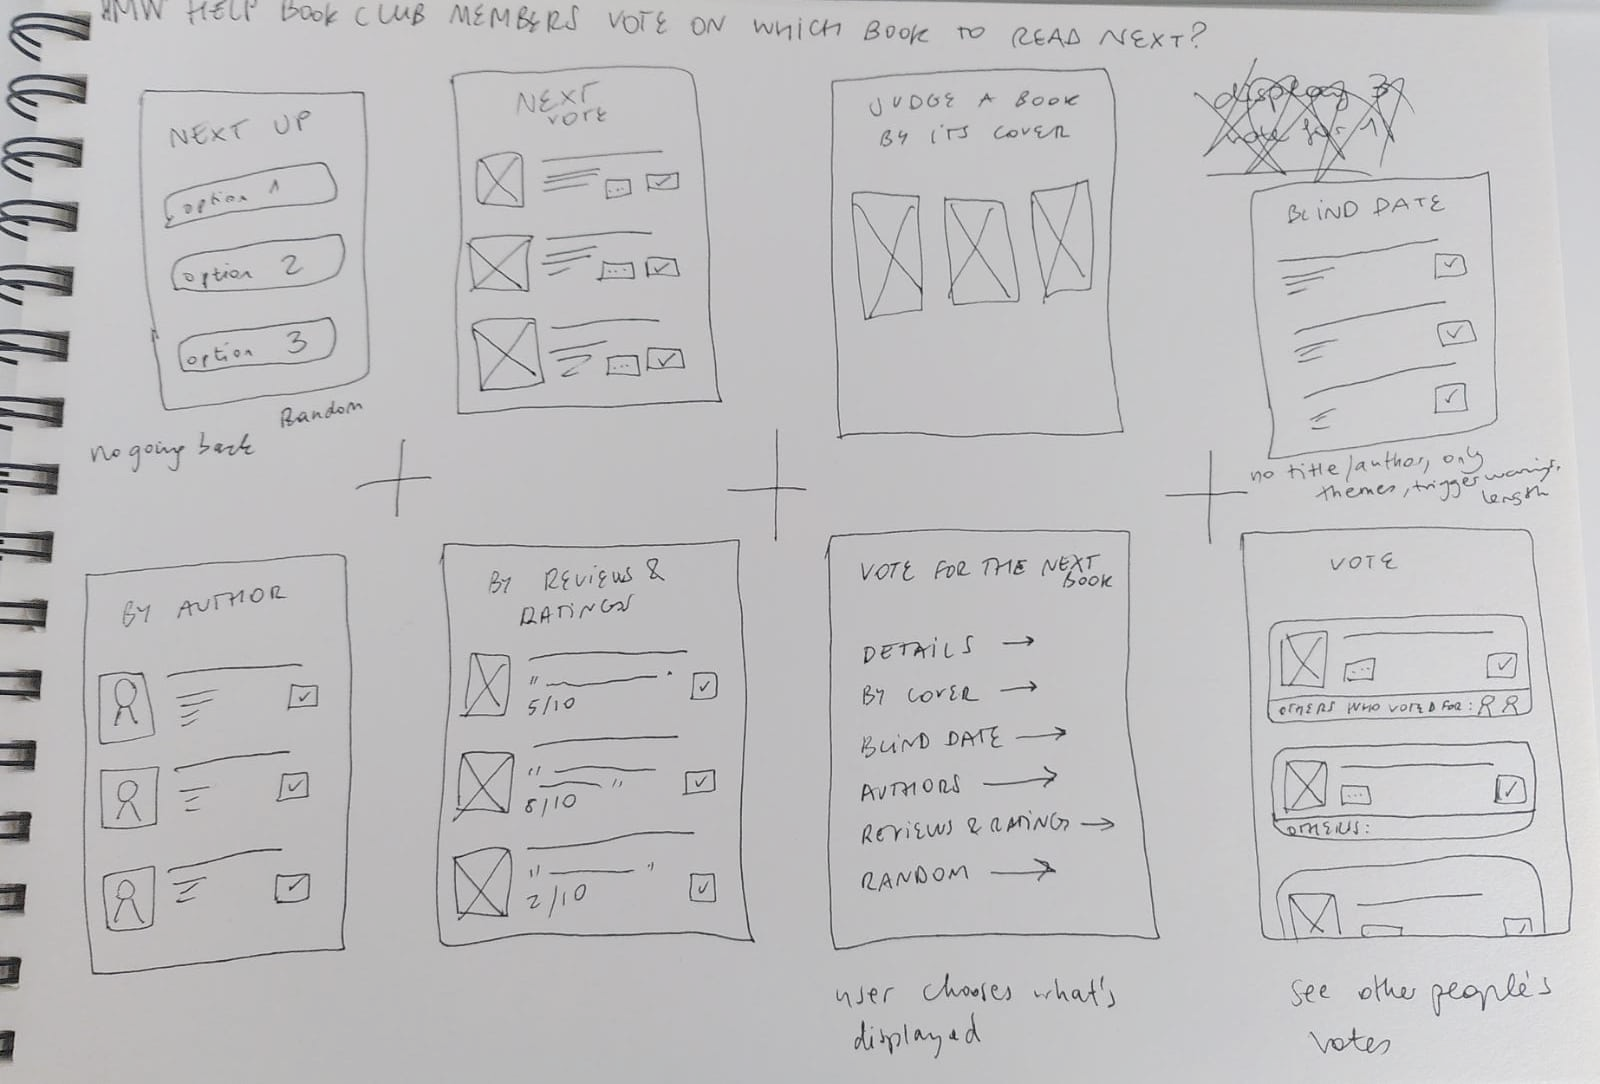 HMW HELP BOOK CLUB MEMBERS VOTE ON WHICH BOOK TO READ NEXT?
NEXT UP
option 1
option 2
option 3
Random
no going back
NEXT
VOTE
JUDGE A BOOK
BY ITS COVER
display 3
vote for 1
BLIND DATE
no title/author, only
themes, trigger warnings,
length
BY AUTHOR
BY REVIEWS &
RATINGS
5/10
8/10
2/10
VOTE FOR THE NEXT
BOOK
DETAILS →
BY COVER →
BLIND DATE →
AUTHORS →
REVIEWS & RATINGS →
RANDOM →
user chooses what's
displayed
VOTE
OTHERS WHO VOTED FOR:
OTHERS:
see other people's
votes